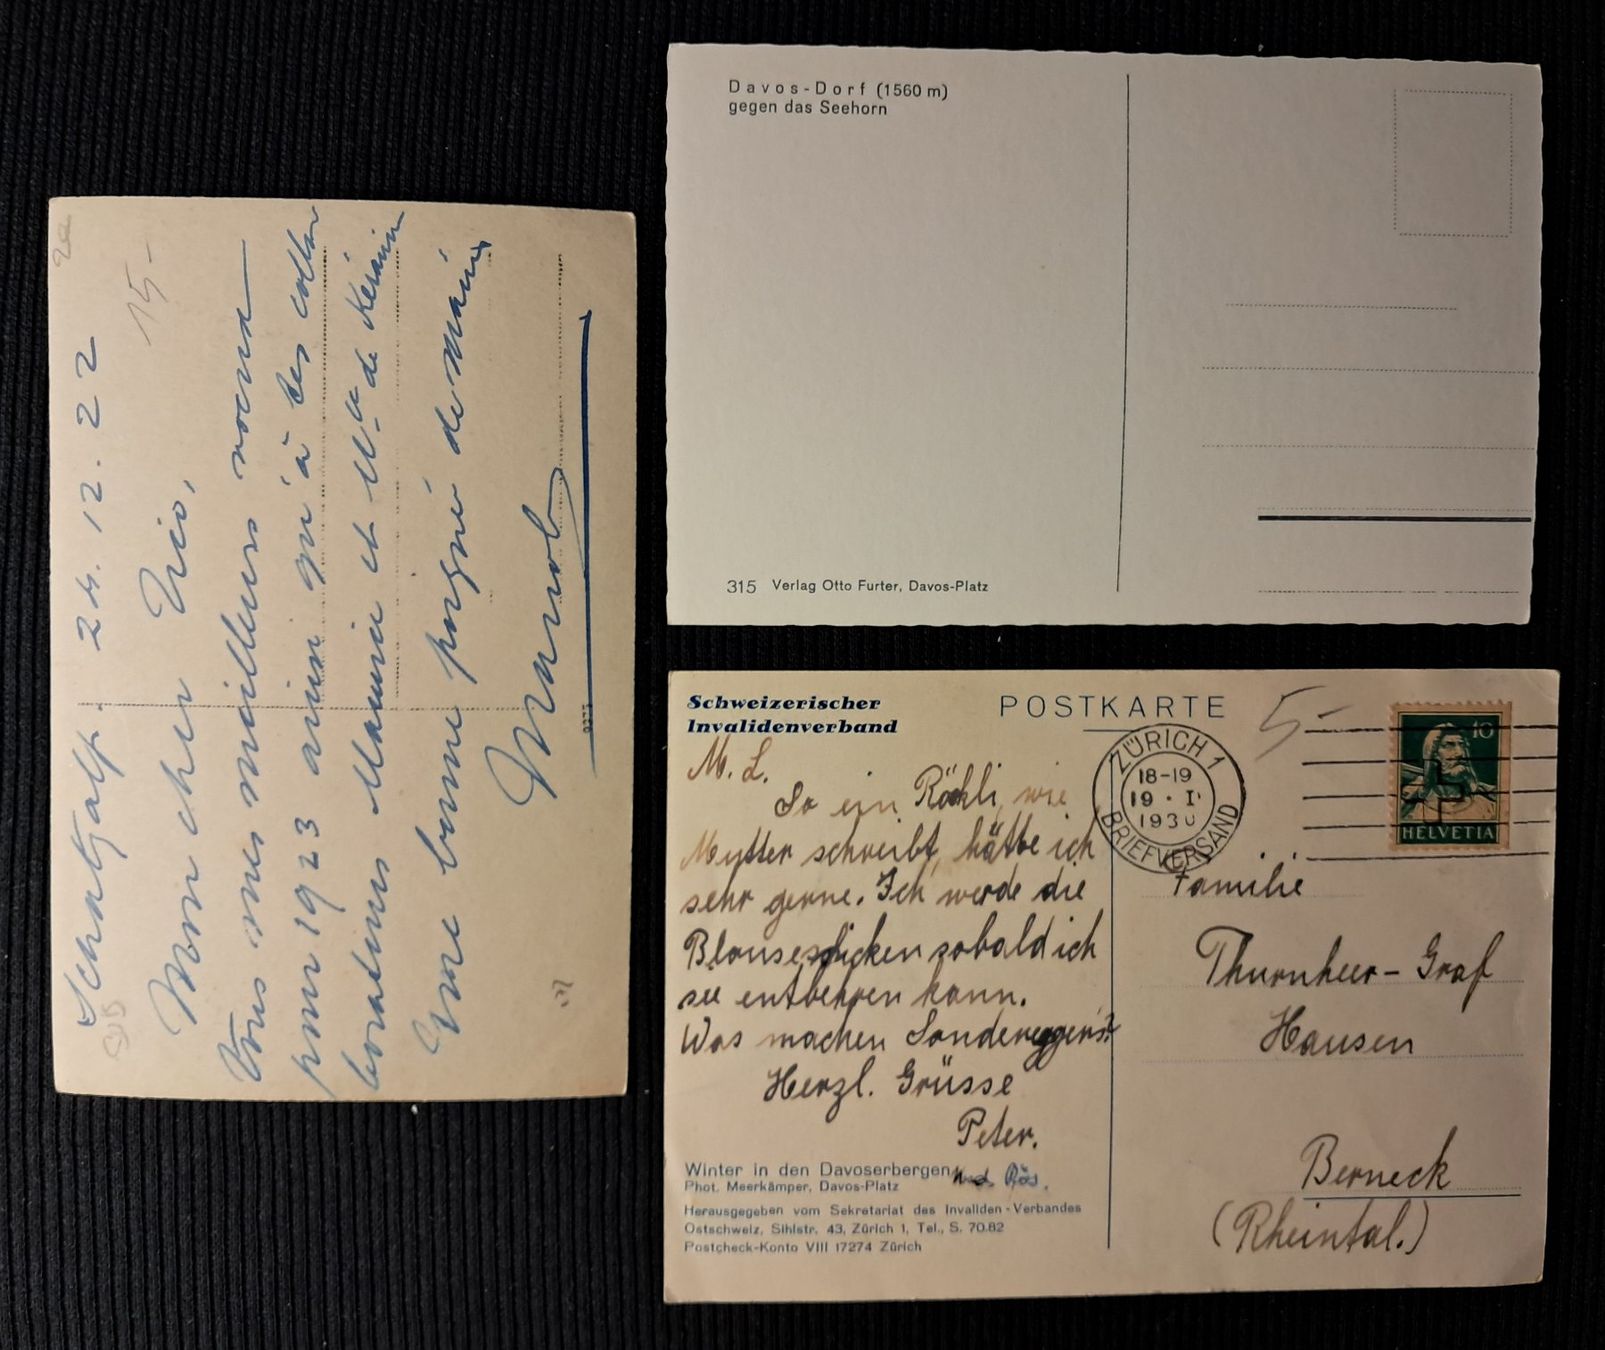 Schatzalp. 24.12.22
15.-
Mon cher Vico,
Tous mes meilleurs voeux
pour 1923 ainsi qu'à tes colla
borateurs Maurice et Mr de
Une bonne poignée de mains
Davos-Dorf (1560 m)
gegen das Seehorn
315 Verlag Otto Furter, Davos-Platz
Schweizerischer
Invalidenverband
POSTKARTE
5.-
ZÜRICH 1
18-19
19 · I
1930
BRIEFVERSAND
10
HELVETIA
M. L.
So ein Röckli, wie
Mutter schreibt, hätte ich
sehr gerne. Ich werde die
Blouse schicken sobald ich
sie entbehren kann.
Was machen Sondereggers?
Herzl. Grüsse
Peter.
und Rös.
Winter in den Davoserbergen
Phot. Meerkämper, Davos-Platz
Herausgegeben vom Sekretariat des Invaliden-Verbandes
Ostschweiz, Sihlstr. 43, Zürich 1, Tel., S. 70.82
Postcheck-Konto VIII 17274 Zürich
Familie
Thurnheer-Graf
Hausen
Berneck
(Rheintal.)